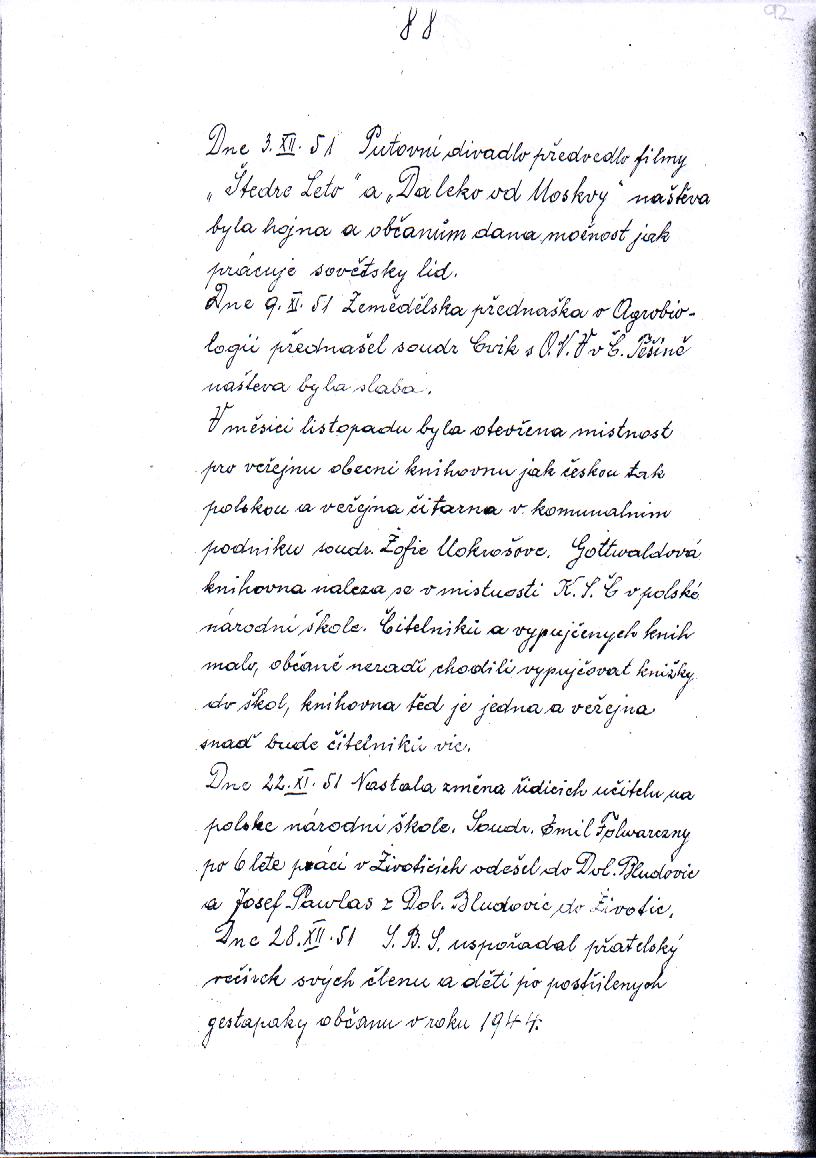 88
92
Dne 3. XII. 51 Putovní divadlo předvedlo filmy
„Štedre Leto" a „Daleko od Moskvy" našteva
byla hojna a občanům dana možnost jak
prácuje sovětsky lid.
Dne 9. XI. 51 Zemědělska přednaška o Agrobio-
logii přednašel soudr Cvik s O.N.V v Č. Těšině
našteva byla slaba.
V měsici listopadu byla otevřena mistnost
pro veřejnu obecni knihovnu jak českou tak
polskou a veřejna čitarna v komunalnim
podniku soudr. Žofie Mokrošove. Gottwaldová
knihovna naleza se v mistnosti K.S.Č v polské
národní škole. Čitelniků a vypujčenych knih
malo, občané neradi chodili vypujčovat knižky
do škol, knihovna těd je jedna a veřejna
snad bude čitelniků vic.
Dne 22. XI. 51 Nastala změna řidicich učitelu na
polske národni škole. Soudr. Emil Folwarczny
po 6 lete práci v Životicich odešel do Dol. Bludovic
a Josef Pawlas z Dol. Bludovic do Životic.
Dne 28. XII. 51 S.B.S. uspořadal přatelský
večirek svých členu a děti po postřilenych
gestapaky občanu v roku 1944.